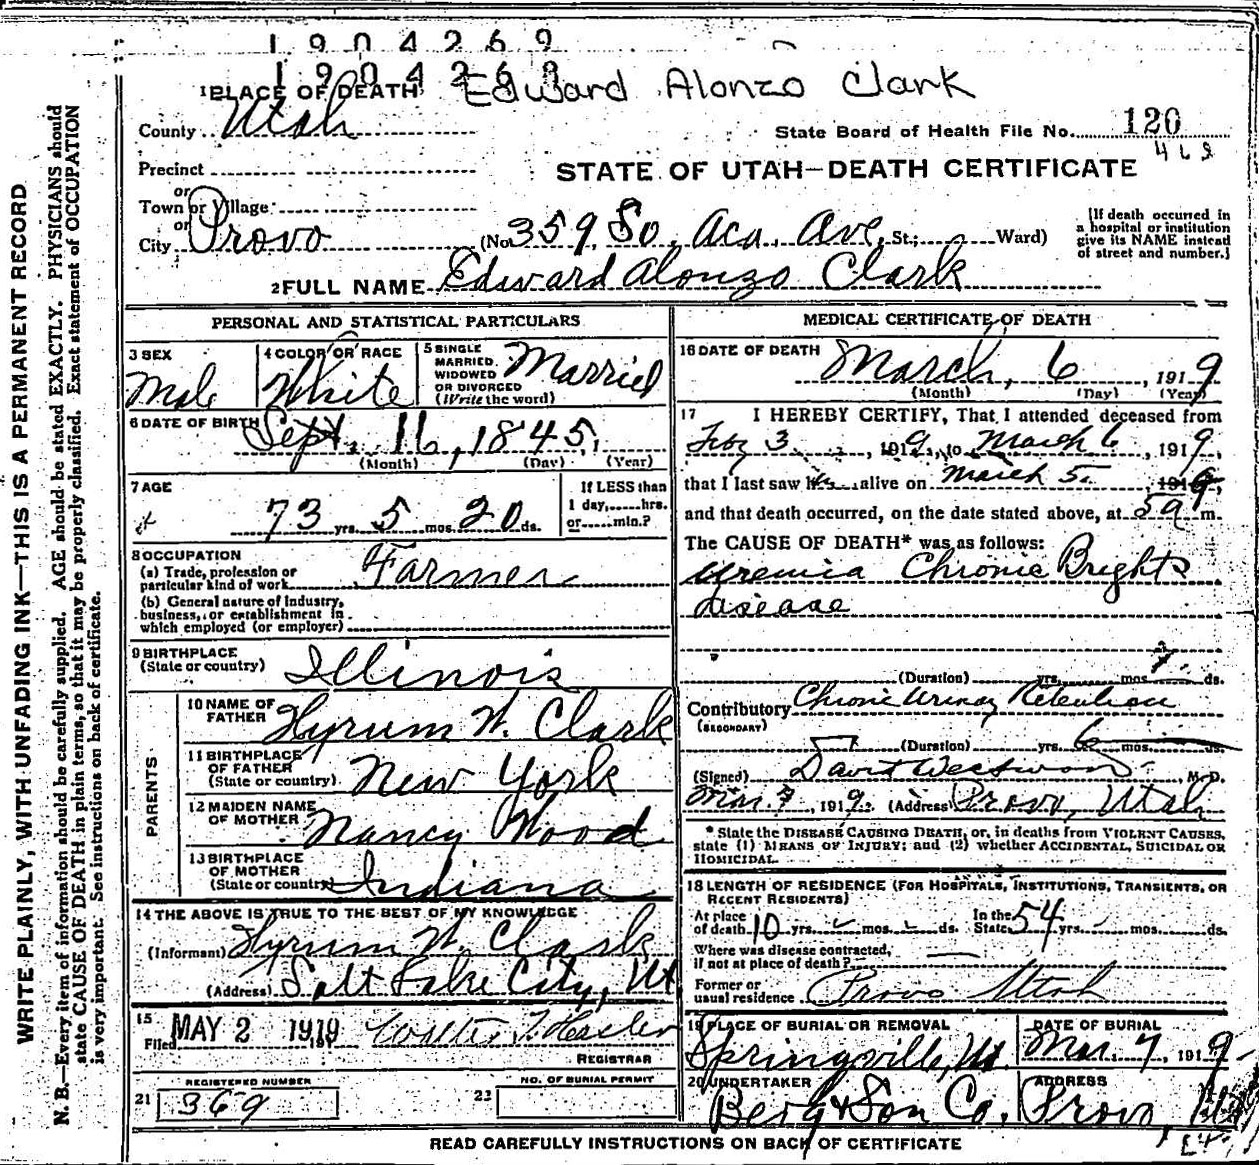 1904269
1904268
1 PLACE OF DEATH Edward Alonzo Clark
County Utah
State Board of Health File No. 120
468
Precinct
STATE OF UTAH—DEATH CERTIFICATE
or
Town or Village
or
City Provo (No 359 So. Aca. Ave. St.; Ward)
[If death occurred in a hospital or institution give its NAME instead of street and number.]
2 FULL NAME Edward Alonzo Clark
PERSONAL AND STATISTICAL PARTICULARS
3 SEX
Male
4 COLOR OR RACE
White
5 SINGLE MARRIED, WIDOWED OR DIVORCED (Write the word)
Married
6 DATE OF BIRTH Sept. 16, 1845,
(Month) (Day) (Year)
7 AGE
73 yrs. 5 mos. 20 ds.
If LESS than
1 day, hrs.
or min.?
8 OCCUPATION
(a) Trade, profession or
particular kind of work Farmer
(b) General nature of industry,
business, or establishment in
which employed (or employer)
9 BIRTHPLACE
(State or country) Illinois
PARENTS
10 NAME OF
FATHER Hyrum W. Clark
11 BIRTHPLACE
OF FATHER
(State or country) New York
12 MAIDEN NAME
OF MOTHER Nancy Wood
13 BIRTHPLACE
OF MOTHER
(State or country) Indiana
14 THE ABOVE IS TRUE TO THE BEST OF MY KNOWLEDGE
(Informant) Hyrum W. Clark
(Address) Salt Lake City, Ut
15
Filed MAY 2 1919
REGISTRAR
REGISTERED NUMBER
21 369
NO. OF BURIAL PERMIT
22
MEDICAL CERTIFICATE OF DEATH
16 DATE OF DEATH March, 6, 1919
(Month) (Day) (Year)
17 I HEREBY CERTIFY, That I attended deceased from
3, 1919, to March 6, 1919,
that I last saw alive on March 5. 1919,
and that death occurred, on the date stated above, at 5 a m.
The CAUSE OF DEATH* was as follows:
Uremia Chronic Brights
disease
(Duration) yrs. mos. ds.
Contributory Chronic Urinary Retention
(SECONDARY)
(Duration) yrs. 6 mos. ds.
(Signed) David Westwood M.D.
Mar. 7, 1919. (Address) Provo, Utah
* State the DISEASE CAUSING DEATH, or, in deaths from VIOLENT CAUSES,
state (1) MEANS OF INJURY; and (2) whether ACCIDENTAL, SUICIDAL OR
HOMICIDAL.
18 LENGTH OF RESIDENCE (FOR HOSPITALS, INSTITUTIONS, TRANSIENTS, OR
RECENT RESIDENTS)
At place
of death 10 yrs. mos. ds. In the State 54 yrs. mos. ds.
Where was disease contracted,
if not at place of death?
Former or
usual residence Provo Utah
19 PLACE OF BURIAL OR REMOVAL
Springville, Ut.
DATE OF BURIAL
Mar. 7, 1919
20 UNDERTAKER
Berg & Son Co.
ADDRESS
Provo
READ CAREFULLY INSTRUCTIONS ON BACK OF CERTIFICATE
WRITE PLAINLY, WITH UNFADING INK—THIS IS A PERMANENT RECORD
N. B.—Every item of information should be carefully supplied. AGE should be stated EXACTLY. PHYSICIANS should
state CAUSE OF DEATH in plain terms, so that it may be properly classified. Exact statement of OCCUPATION
is very important. See instructions on back of certificate.